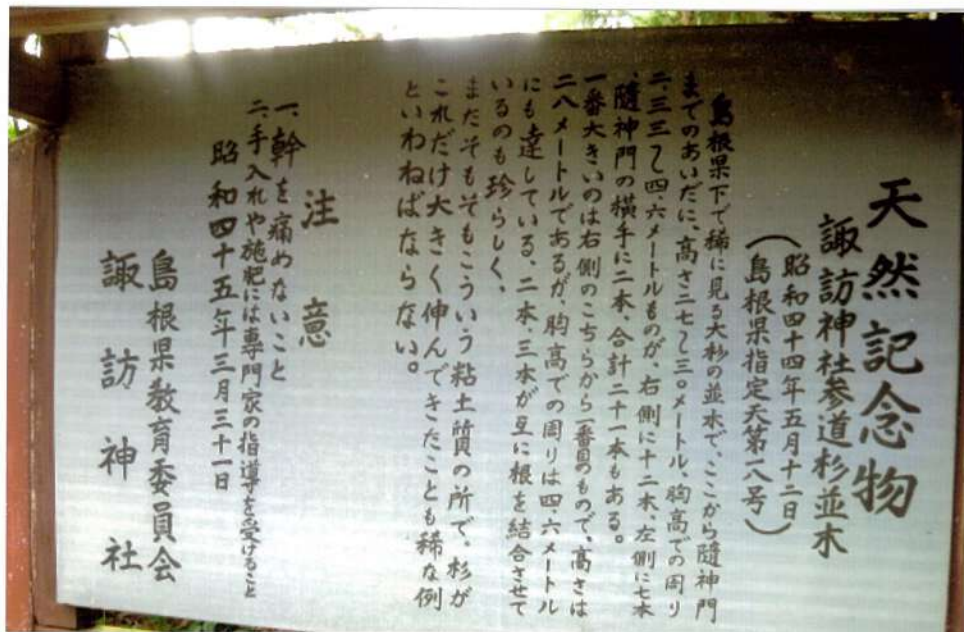 天然記念物
諏訪神社参道杉並木
(昭和四十四年五月十二日
島根県指定天第一八号)
島根県下で稀に見る大杉の並木で、ここから随神門
までのあいだに、高さ二七〜三〇メートル、胸高での周り
二、三三〜四、六メートルものが、右側に十二本、左側に七本
、随神門の横手に二本、合計二十一本もある。
一番大きいのは右側のこちらから一番目のもので、高さは
二八メートルであるが、胸高での周りは四、六メートル
にも達している、二本、三本が互に根を結合させて
いるのも珍らしく、
まだそもそもこういう粘土質の所で、杉が
これだけ大きく伸んできたことも稀な例
といわねばならない。
注意
一、幹を痛めないこと
二、手入れや施肥には専門家の指導を受けること
昭和四十五年三月三十一日
島根県教育委員会
諏訪神社